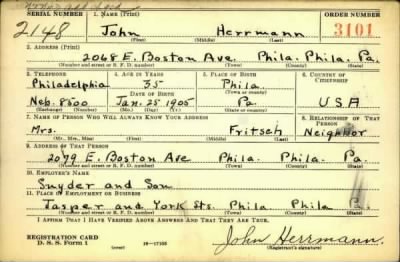 SERIAL NUMBER 1. NAME (Print) ORDER NUMBER
2148 John Herrmann 3101
2. ADDRESS (Print)
2068 E. Boston Ave. Phila. Phila. Pa.
(Number and street or R. F. D. number) (Town) (County) (State)
3. TELEPHONE 4. AGE IN YEARS 5. PLACE OF BIRTH 6. COUNTRY OF CITIZENSHIP
Philadelphia 35 Phila.
DATE OF BIRTH (Town or county)
Neb. 8500 Jan. 25 1905 Pa. USA
(Mo.) (Day) (Yr.) (State or country)
7. NAME OF PERSON WHO WILL ALWAYS KNOW YOUR ADDRESS 8. RELATIONSHIP OF THAT PERSON
Mrs. Fritsch Neighbor
(Mr., Mrs., Miss) (First) (Middle) (Last)
9. ADDRESS OF THAT PERSON
2079 E. Boston Ave Phila. Phila. Pa.
(Number and street or R. F. D. number) (Town) (County) (State)
10. EMPLOYER'S NAME
Snyder and Son
11. PLACE OF EMPLOYMENT OR BUSINESS
Jasper and York Sts. Phila Phila Pa.
(Number and street or R. F. D. number) (Town) (County) (State)
I AFFIRM THAT I HAVE VERIFIED ABOVE ANSWERS AND THAT THEY ARE TRUE.
REGISTRATION CARD
D. S. S. Form 1 (over) 16—17105 John Herrmann.
(Registrant's signature)